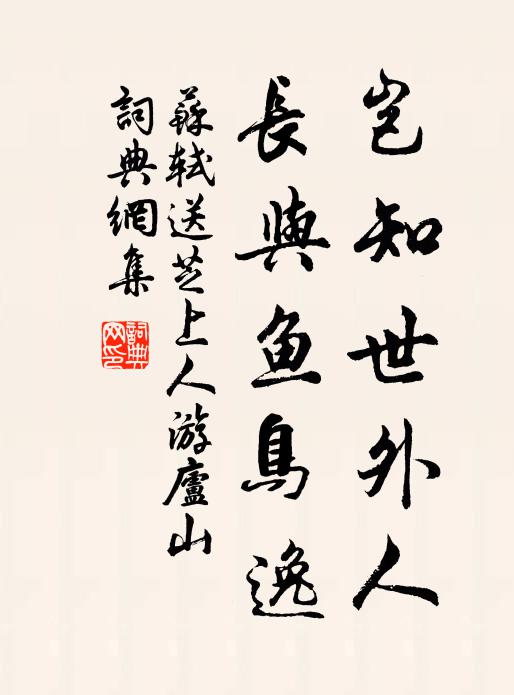 岂知世外人
長與魚鳥逸
蘇軾送芝上人游廬山
詞典網集
詞典网印